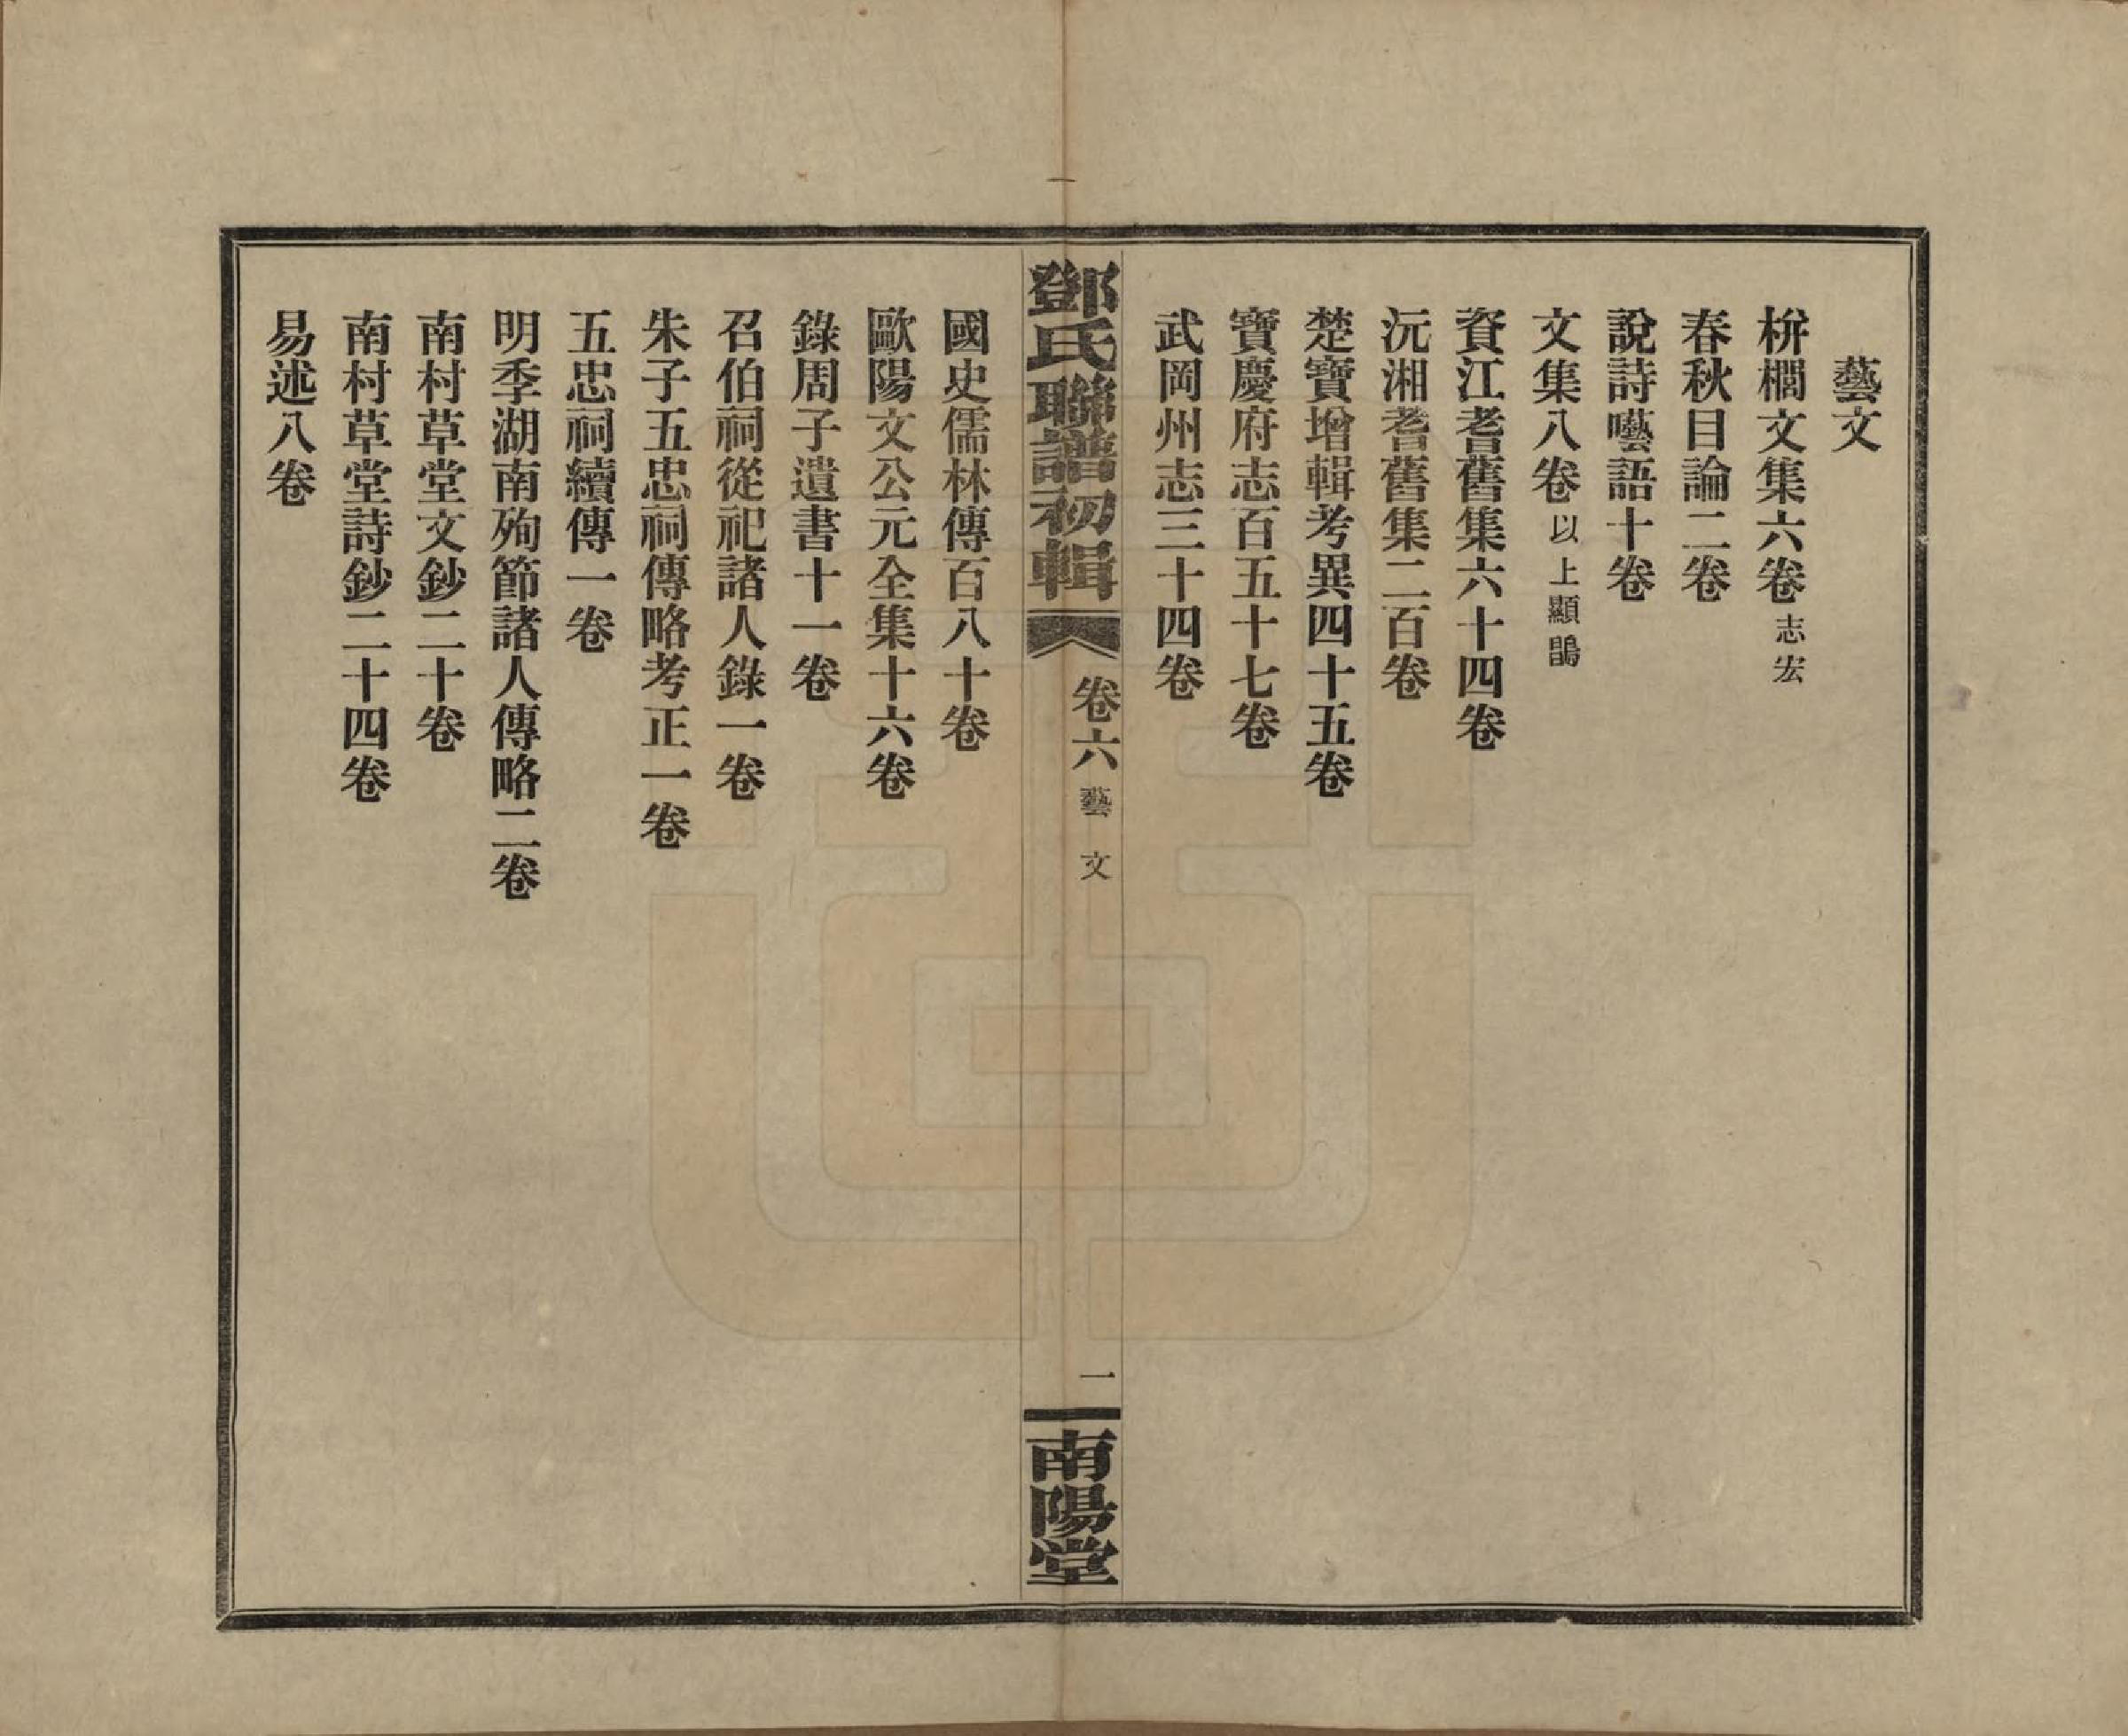 藝文
栟櫚文集六卷志宏
春秋目論二卷
說詩囈語十卷
文集八卷以上顯鵾
資江耆舊集六十四卷
沅湘耆舊集二百卷
楚寶增輯考異四十五卷
寶慶府志百五十七卷
武岡州志三十四卷
鄧氏聯譜初輯
卷六
藝文
一
南陽堂
國史儒林傳百八十卷
歐陽文公元全集十六卷
錄周子遺書十一卷
召伯祠從祀諸人錄一卷
朱子五忠祠傳略考正一卷
五忠祠續傳一卷
明季湖南殉節諸人傳略二卷
南村草堂文鈔二十卷
南村草堂詩鈔二十四卷
易述八卷